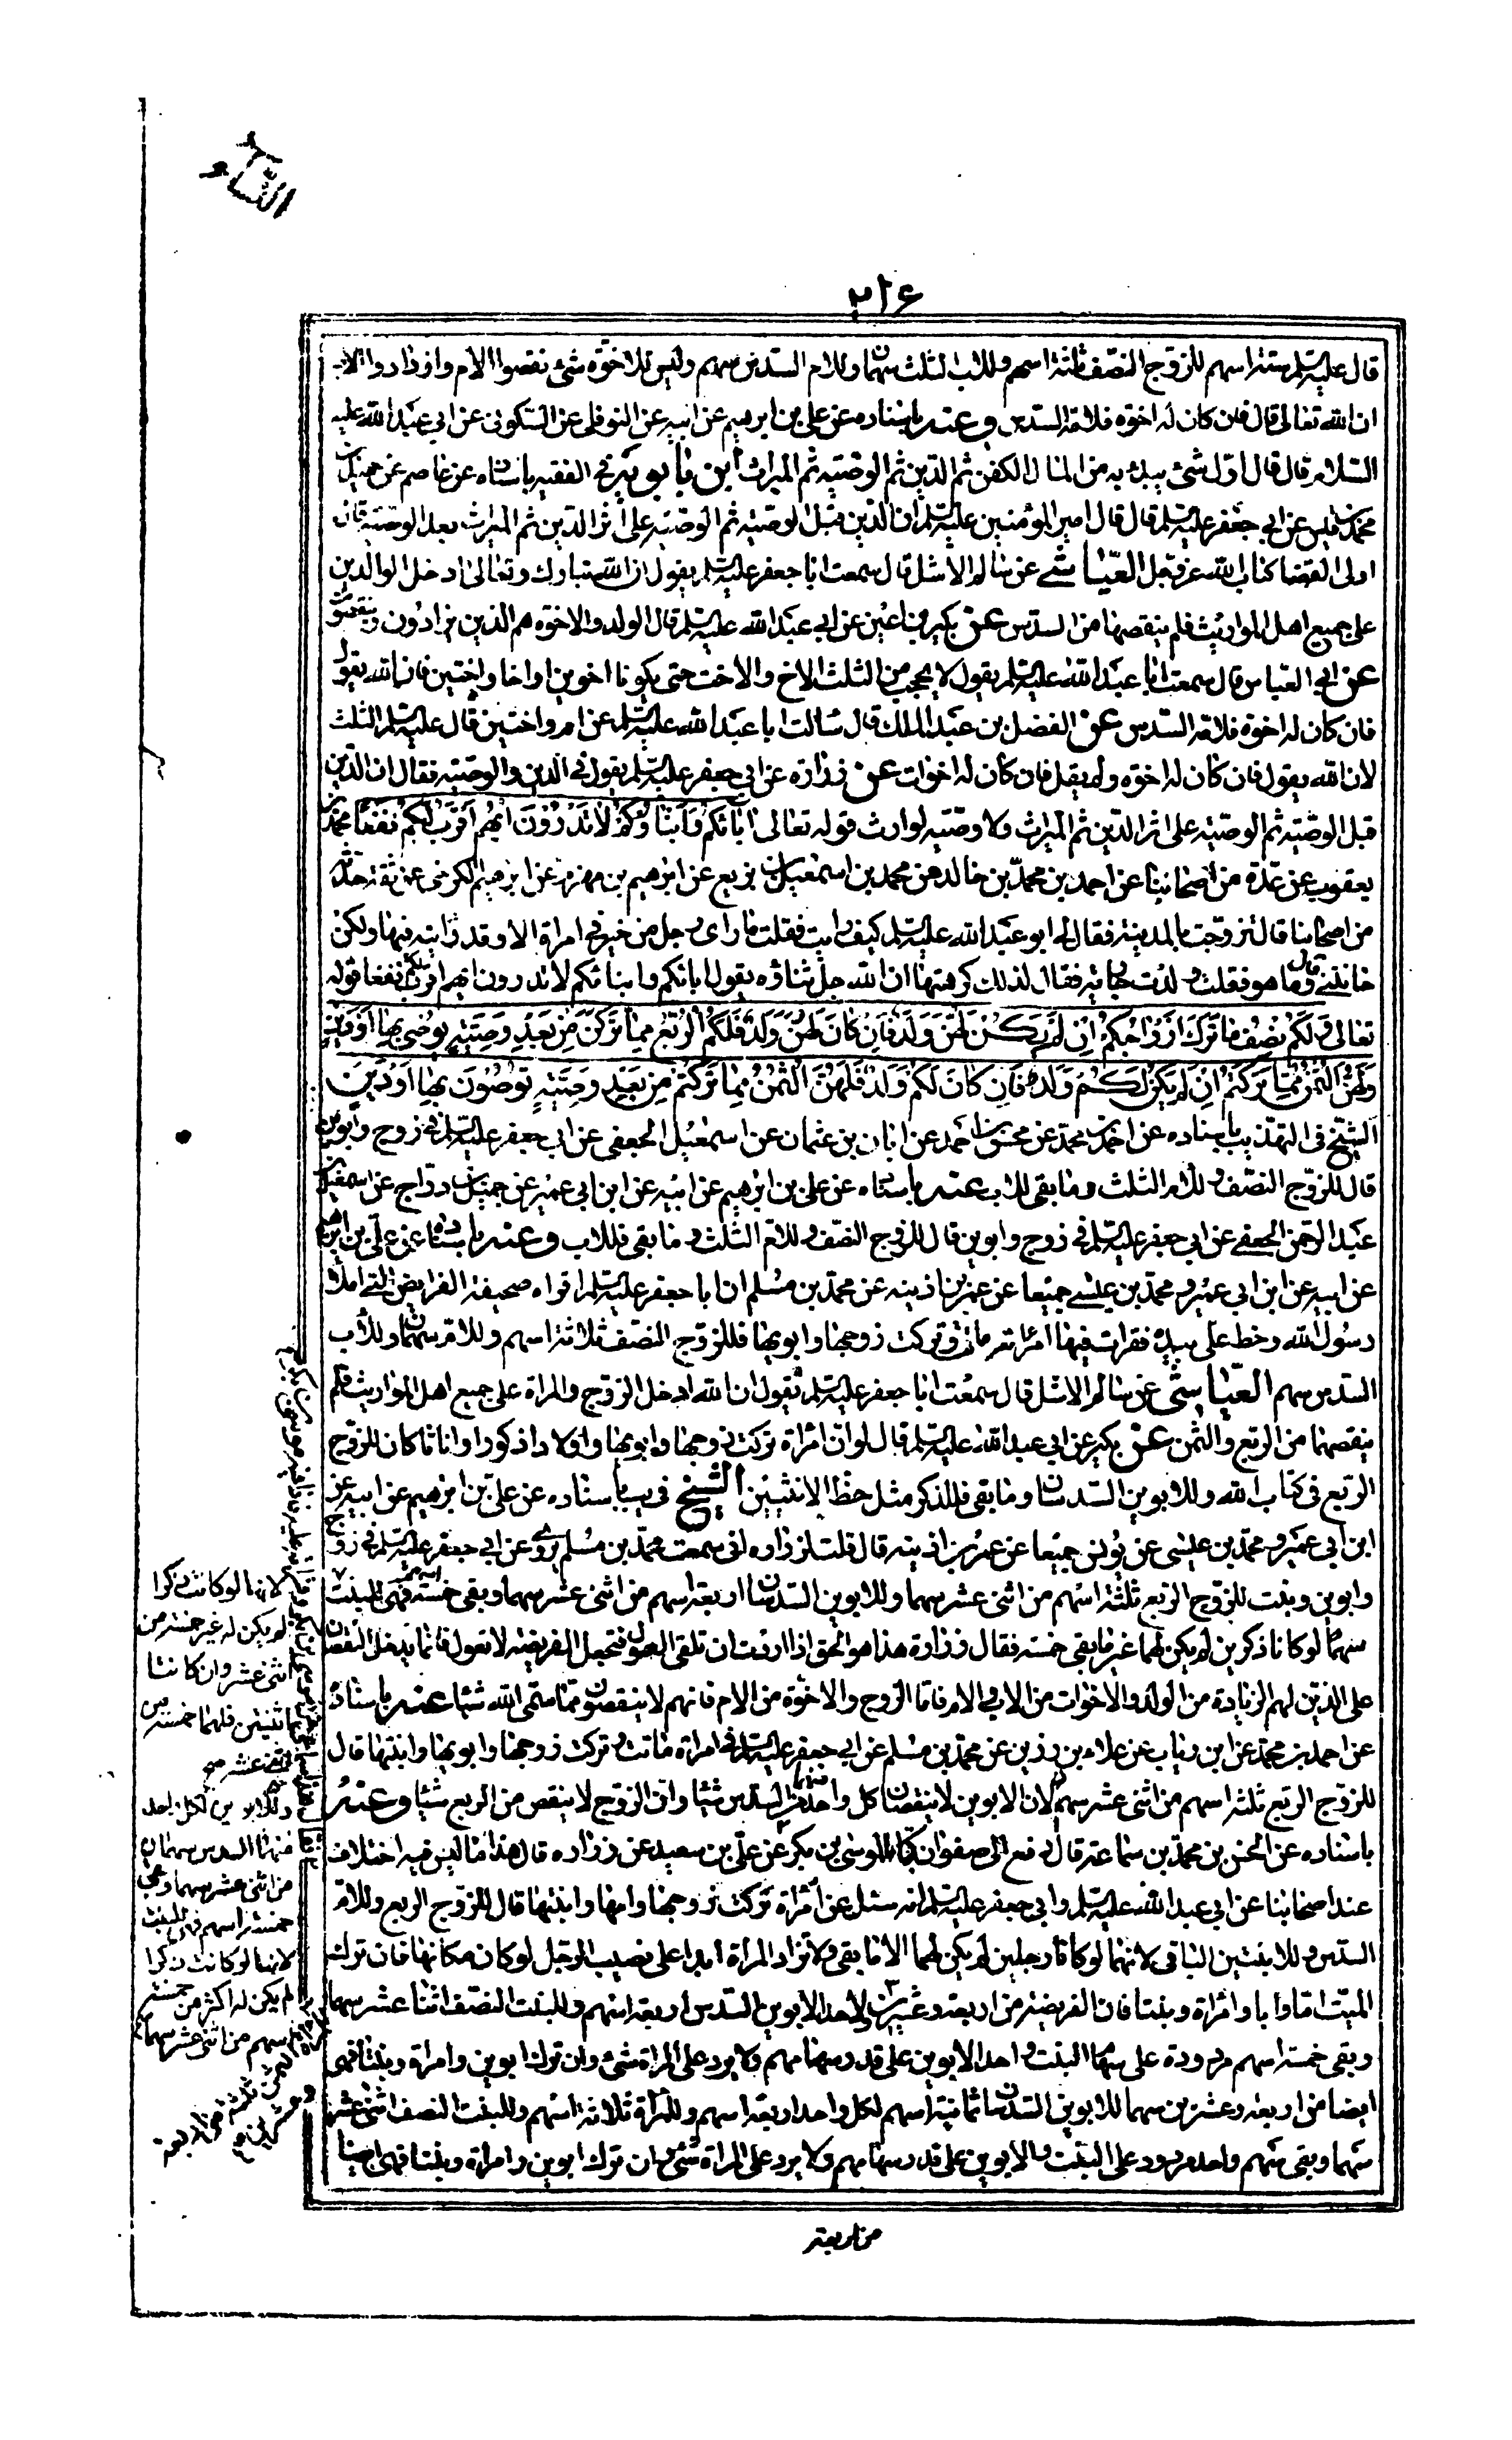 النساء
٢١٦
قال عليه السلم ستة اسهم للزوج النصف ثلثة اسهم وللاب الثلث سهمان وللام السدس سهم وليس للاخوة شئ نقصوا الام وازدادوا الاب
ان الله تعالى قال فان كان له اخوة فلامه السدس وعنه باسناده عن علي بن ابرهيم عن ابيه عن النوفلي عن السكوني عن ابي عبد الله عليه
السلام قال قال اول شئ يبدء به من المال الكفن ثم الدين ثم الوصية ثم الميراث ابن بابويه في الفقيه باسناده عن عاصم عن حميد بن
محمد بن قيس عن ابي جعفر عليه السلم قال قال امير المؤمنين عليه السلم ان الدين قبل الوصية ثم الوصية على اثر الدين ثم الميراث بعد الوصية فان
اولى القضا كتاب الله عز وجل العياشي عن سالم الاشل قال سمعت ابا جعفر عليه السلم يقول ان الله تبارك وتعالى ادخل الوالدين
على جميع اهل المواريث فلم ينقصهما من السدس عن بكير بن اعين عن ابي عبد الله عليه السلم قال الولد والاخوة هم الذين يزادون وينقصون
عن ابي العباس قال سمعت ابا عبد الله عليه السلم يقول لا يحجب من الثلث الاخ والاخت حتى يكونا اخوين او اخا واختين فان الله يقول
فان كان له اخوة فلامه السدس عن الفضل بن عبد الملك قال سالت ابا عبد الله عليه السلم عن ام واختين قال عليه السلم الثلث
لان الله يقول فان كان له اخوة ولم يقل فان كان له اخوات عن زرارة عن ابي جعفر عليه السلم يقول في الدين والوصية فقال ان الدين
قبل الوصية ثم الوصية على اثر الدين ثم الميراث ولا وصية لوارث قوله تعالى اٰبائكم وابناؤكم لا تدرون ايهم اقرب لكم نفعا محمد بن
يعقوب عن عدة من اصحابنا عن احمد بن محمد بن خالد عن محمد بن اسمعيل بن بزيع عن ابرهيم بن مهزم عن ابرهيم الكرخي عن ثقة حدثه
من اصحابنا قال تزوجت بالمدينة فقال لي ابو عبد الله عليه السلم كيف رايت فقلت ما راى رجل من خير في امراة الا وقد رايته فيها ولكن
خانتني قال وما هو فقلت ولدت جارية فقال لذلك كرهتها ان الله جل ثناؤه يقول ابائكم وابنائكم لا تدرون ايهم اقرب لكم نفعا قوله
تعالى ولكم نصف ما ترك ازواجكم ان لم يكن لهن ولد فان كان لهن ولد فلكم الربع مما تركن من بعد وصية يوصى بها او دين
ولهن الثمن مما تركتم ان لم يكن لكم ولد فان كان لكم ولد فلهن الثمن مما تركتم من بعد وصية توصون بها او دين
الشيخ في التهذيب باسناده عن احمد بن محمد عن محسن بن احمد عن ابان بن عثمان عن اسمعيل الجعفي عن ابي جعفر عليه السلم في زوج وابوين
قال للزوج النصف وللام الثلث وما بقي للاب عنه باسناده عن علي بن ابرهيم عن ابيه عن ابن ابي عمير عن جميل بن دراج عن اسمعيل بن
عبد الرحمن الجعفي عن ابي جعفر عليه السلم في زوج وابوين قال للزوج النصف وللام الثلث وما بقي فللاب وعنه باسناده عن علي بن ابرهيم
عن ابيه عن ابن ابي عمير ومحمد بن عيسى جميعا عن عمر بن اذينه عن محمد بن مسلم ان ابا جعفر عليه السلم اقراه صحيفة الفرايض التي املاء
رسول الله وخط علي بيده فقرات فيها امراة ماتت وتركت زوجها وابويها فللزوج النصف ثلاثة اسهم وللام سهمان وللاب
السدس سهم العياشي عن سالم الاشل قال سمعت ابا جعفر عليه السلم يقول ان الله ادخل الزوج والمراة على جميع اهل المواريث فلم
ينقصهما من الربع والثمن عن بكير عن ابي عبد الله عليه السلم قال لو ان امراة تركت زوجها وابويها واولادا ذكورا واناثا كان للزوج
الربع في كتاب الله وللابوين السدسان وما بقي فللذكر مثل حظ الانثيين الشيخ في يب باسناده عن علي بن ابرهيم عن ابيه عن
ابن ابي عمير ومحمد بن عيسى عن يونس جميعا عن عمر بن اذينه قال قلت لزراره اني سمعت محمد بن مسلم يروى عن ابي جعفر عليه السلم في زوج
وابوين وبنت للزوج الربع ثلثة اسهم من اثنى عشر سهما وللابوين السدسان اربعة اسهم من اثنى عشر سهما وبقي خمسة اسهم فهي للبنت
سهما لو كانا ذكرين لم يكن لهما غير ما بقى خمسة فقال زرارة هذا هو الحق اذا اردت ان تلقى العول فتجعل الفريضة لا تعول فانما يدخل النقصان
على الذين لهم الزيادة من الولد والاخوات من الاب والام فاما الزوج والاخوة من الام فانهم لا ينقصون مما سمى الله شيئا عنه باسناده
عن احمد بن محمد عن ابن رياب عن علاء بن رزين عن محمد بن مسلم عن ابي جعفر عليه السلم في امراة ماتت وتركت زوجها وابويها وابنتها قال
للزوج الربع ثلثة اسهم من اثنى عشر سهم لان الابوين لا ينقصان كل واحد منهما من السدس شيئا وان الزوج لا ينقص من الربع شيئا وعنه
باسناده عن الحسن بن محمد بن سماعة قال دفع الي صفوان كتابا لموسى بن بكر عن علي بن سعيد عن زراره قال هذا ما ليس فيه اختلاف
عند اصحابنا عن ابي عبد الله عليه السلم وابي جعفر عليه السلم انه سئل عن امراة تركت زوجها وامها وابنتيها قال للزوج الربع وللام
السدس وللابنتين الباقي لانهما لو كانا رجلين لم يكن لهما الا ما بقى ولا تزاد المراة ابدا على نصيب الرجل لو كان مكانها فان ترك
الميت اما وابا وامراة وبنتا فان الفريضة من اربعة وعشرين لاحد الابوين السدس اربعة اسهم وللبنت النصف اثنا عشر سهما
وبقى خمسة اسهم مردودة على سهام البنت واحد الابوين على قدر سهامهم ولا يرد على المراة شئ وان ترك ابوين وامراة وبنتا فهي
ايضا من اربعة وعشرين سهما للابوين السدسان ثمانية اسهم لكل واحد اربعة اسهم وللمراة ثلاثة اسهم وللبنت النصف اثنى عشر
سهما وبقى سهم واحد مردود على البنت والابوين على قدر سهامهم ولا يرد على المراة شئ وان ترك ابوين وامراة وبنتا فهي ايضا
من اربعة
لانها لو كانت ذكرا
لم يكن له غير خمسة من
اثنى عشر وان كانتا
اثنتين فلهما خمسة من
اثنى عشر
وللابوين لكل واحد
منهما السدس سهمان
من اثنى عشر سهما وبقى
خمسة اسهم فهي للبنت
لانها لو كانت ذكرا
لم يكن له اكثر من خمسة
اسهم من اثنى عشر سهما